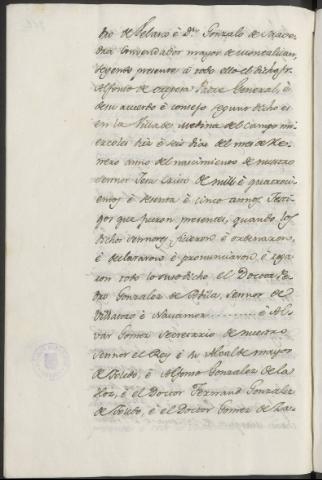 dro de Velasco è Dn. Gonzalo de Saave-
dra Comendador mayor de Montalvan,
seyendo presente à todo esto el dicho fr.
Alfonso de Espina Fraire General, è
de su acuerdo è consejo segunt dicho es
en la Villa de Medina del Campo mi-
ercoles diez è seis dias del mes de He-
nero anno del nacimiento de nuestro
Sennor Jesu Cristo de mill è quatrocien-
tos è sesenta è cinco annos. Testi-
gos que fueron presentes, quando los
dichos sennores ficieron è ordenaron,
è declararon è pronunciaron è roga-
ron todo lo suso dicho el Doctor Pe-
dro Gonzalez de Abila, Sennor de
Villatoro è Navamor.......... è Al-
var Gomez Secretario de nuestro
Sennor el Rey è su Alcalde mayor
de Toledo, è Alfonso Gonzalez de la
Hoz, è el Doctor Fernand Gonzalez
de Toledo, è el Doctor Gomez de